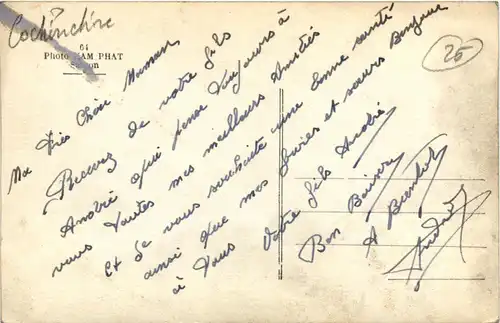 Cochinchine
25
64
Photo NAM PHAT
Saigon
Ma très Chère Maman
Recevez de votre fils
André qui pense toujours à
vous toutes mes meilleurs Amitiés
et Je vous souhaite une bonne santé
ainsi que mes frères et sœurs Bonjour
à Tous Votre fils André
Bon Baiser
A Bientôt
André